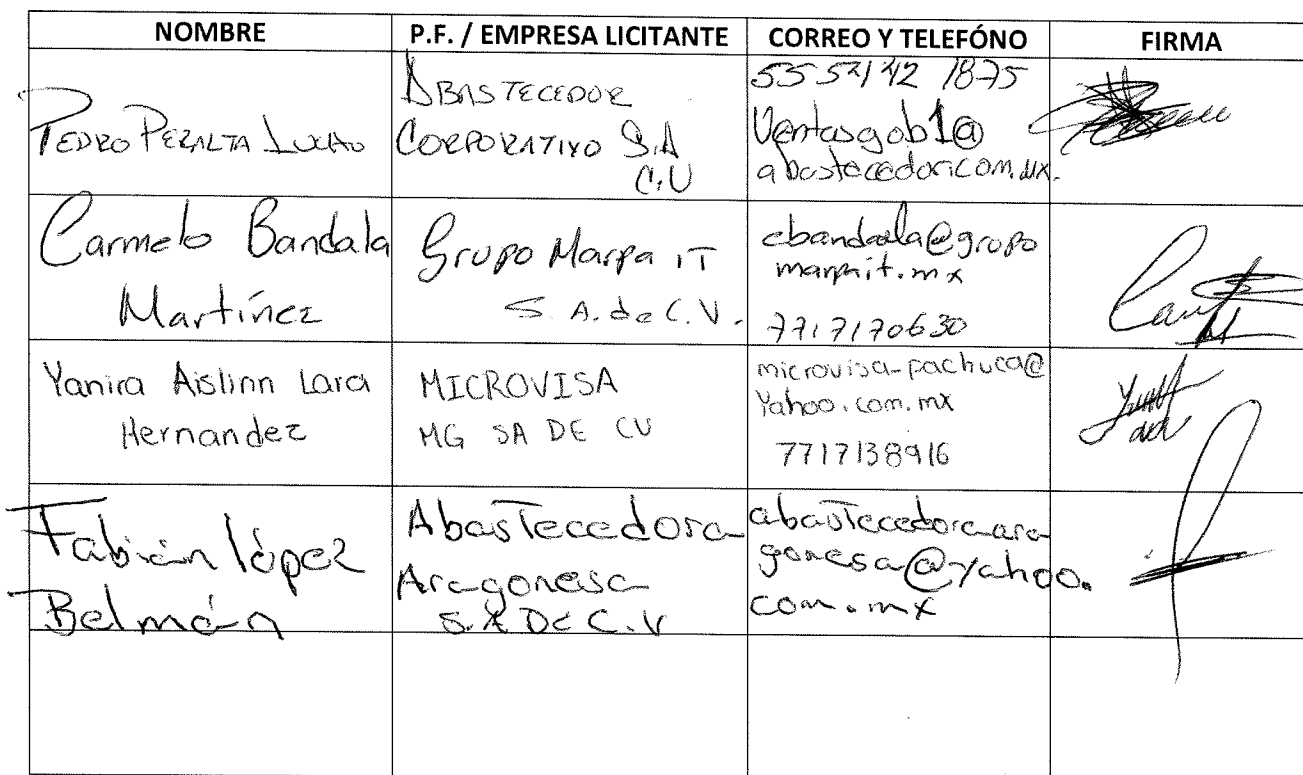 NOMBRE P.F. / EMPRESA LICITANTE CORREO Y TELEFÓNO FIRMA
PEDRO PERALTA
ABASTECEDOR
CORPORATIVO S.A
C.V
55 5242 1875
Ventasgob1@
abastecedor.com.mx.
Carmelo Bandala
Martínez
Grupo Marpa IT
S. A. de C. V.
cbandala@grupo
marpait.mx
7717170630
Yanira Aislinn Lara
Hernandez
MICROVISA
MG SA DE CV
microvisa-pachuca@
Yahoo.com.mx
7717138916
Fabián lópez
Belmán
Abastecedora
Aragonesa
S.A De C.V
abastecedoraara
gonesa@yahoo.
com.mx